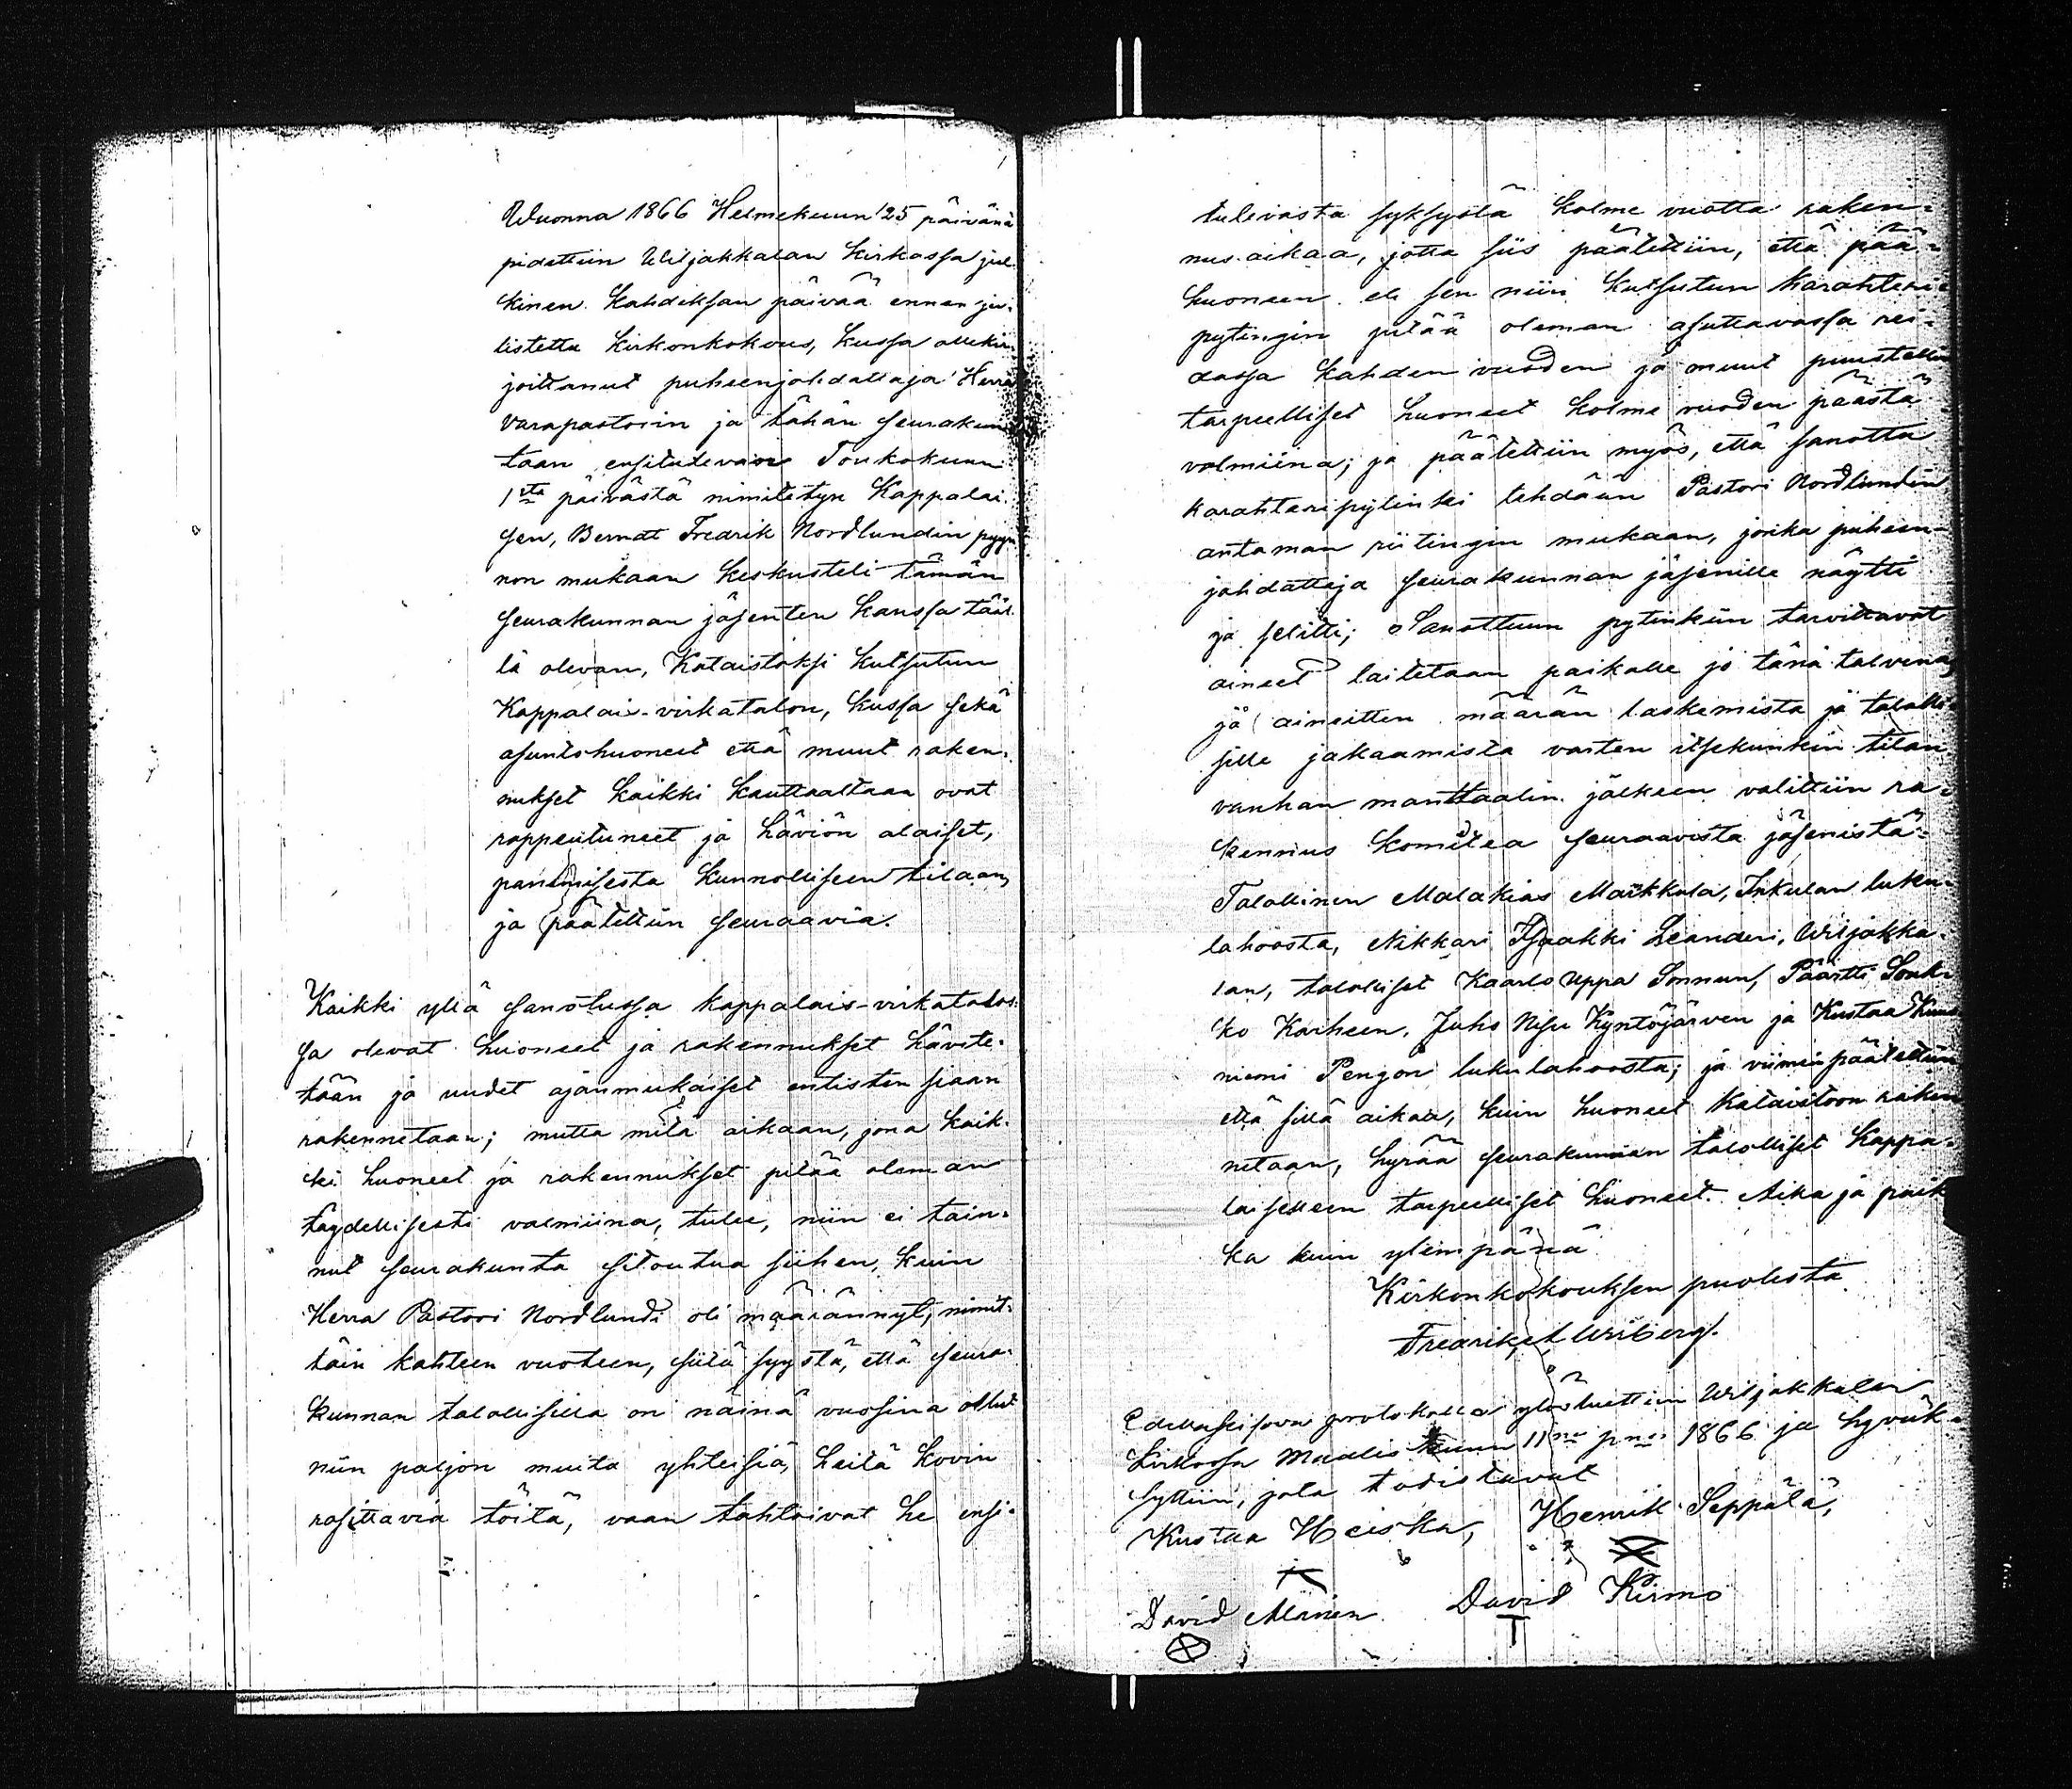 Wuonna 1866 Helmekuun 25 päivänä
pidettiin Wiljakkalan kirkossa jul-
kinen kahdeksan päivää ennen ju-
listettu kirkonkokous, kussa allekir-
joittanut puheenjohdattaja Herra
Varapastorin ja tähän seurakun-
taan ensitulevasta Toukokuun
1stä päivästä nimitetyn Kappalai-
sen, Berndt Fredrik Nordlundin pyyn-
non mukaan keskusteli tämän
seurakunnan jäsenten kanssa tääl-
lä olevan, Kataistoksi kutsutun
Kappalais-virkatalon, kussa sekä
asuntohuoneet että muut raken-
nukset kaikki kauttaaltaan ovat
rappeutuneet ja häviön alaiset,
panemisesta kunnolliseen tilaan,
ja päätettiin seuraavia.
Kaikki yllä sanotussa kappalais-virkatalos-
sa olevat huoneet ja rakennukset hävite-
tään ja uudet ajanmukaiset entisten siaan
rakennetaan; mutta mitä aikaan, jona kaik-
ki huoneet ja rakennukset pitää oleman
täydellisesti valmiina, tulee, niin ei tain-
nut seurakunta sitoutua siihen, kuin
Herra Pastori Nordlundi oli määrännyt, nimit-
täin kahteen vuoteen, siitä syystä, että seura-
kunnan talollisilla on näinä vuosina ollut
niin paljon muita yhteisiä, heitä kovin
rasittavia töitä, vaan tahtoivat he ensi-
tulevasta syksystä kolme vuotta raken-
nus-aikaa, jotta siis päätettiin, että pää-
huoneen eli sen niin kutsutun karahteri-
pytingin pitää oleman asuttavassa rei-
dassa kahden vuoden ja muut puustellin
tarpeelliset huoneet kolme vuoden päästä
valmiina; ja päätettiin myös, että sanottu
karahteripytinki tehdään Pastori Nordlundin
antaman riitingin mukaan, jonka puheen-
johdattaja seurakunnan jäsenille näytti
ja selitti; Sanottuun pytinkiin tarvittavat
aineet laitetaan paikalle jo tänä talvena,
ja aineitten määrän laskemista ja talolli-
sille jakaamista varten itsekunkin tilan
vanhan manttaalin jälkeen valittiin ra-
kennus komitea seuraavista jäsenistä:
Talollinen Malakias Markkula, Inkulan luku-
lahosta, Nikkari Isaakki Leanderi, Wiljakka-
lan, talolliset Kaarlo Uppa Sonnun, Päärtti Sonk-
ko Karheen, Juho Nisu Kyntöjärven ja Kustaa Kuus-
niemi Pengon lukulahoosta; ja viimein päätettiin
että sillä aikaa, kuin huoneet Kataistoon raken-
netaan, hyrää seurakunnan talolliset Kappa-
laiselleen tarpeelliset huoneet. Aika ja paik-
ka kuin ylempänä
Kirkonkokouksen puolesta
Fredrik Wiberg.
Edelläseisova protokolla ylösluettiin Wiljakkalan
kirkossa Maaliskuun 11nä pnä 1866 ja hyväk-
syttiin, jota todistavat
Kustaa Heiska, Henrik Seppälä,
David David Kirmo